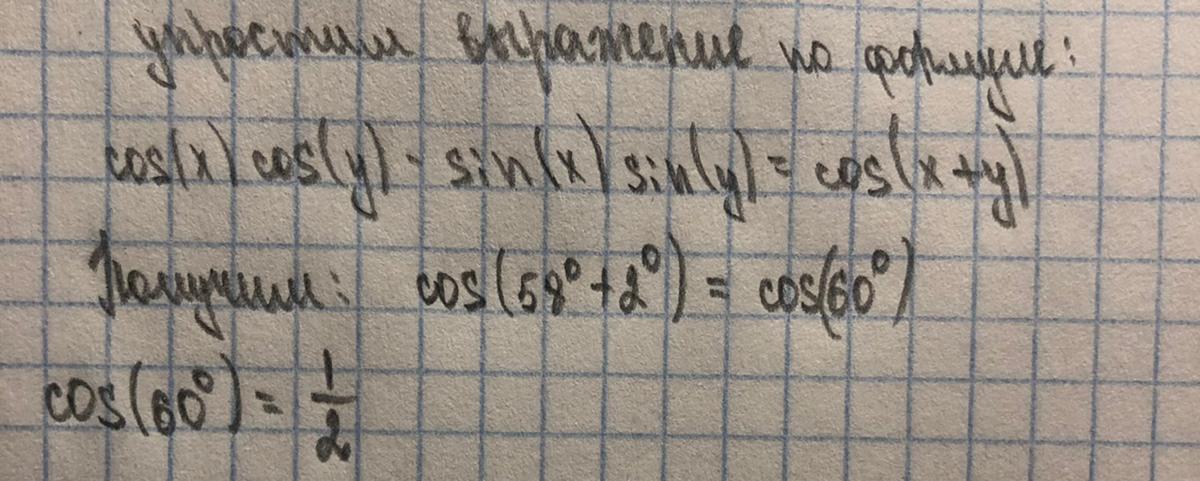 упростим выражение по формуле:
cos(x) cos(y) - sin(x) sin(y) = cos(x+y)
Получим: cos(58° + 2°) = cos(60°)
cos(60°) = 1/2